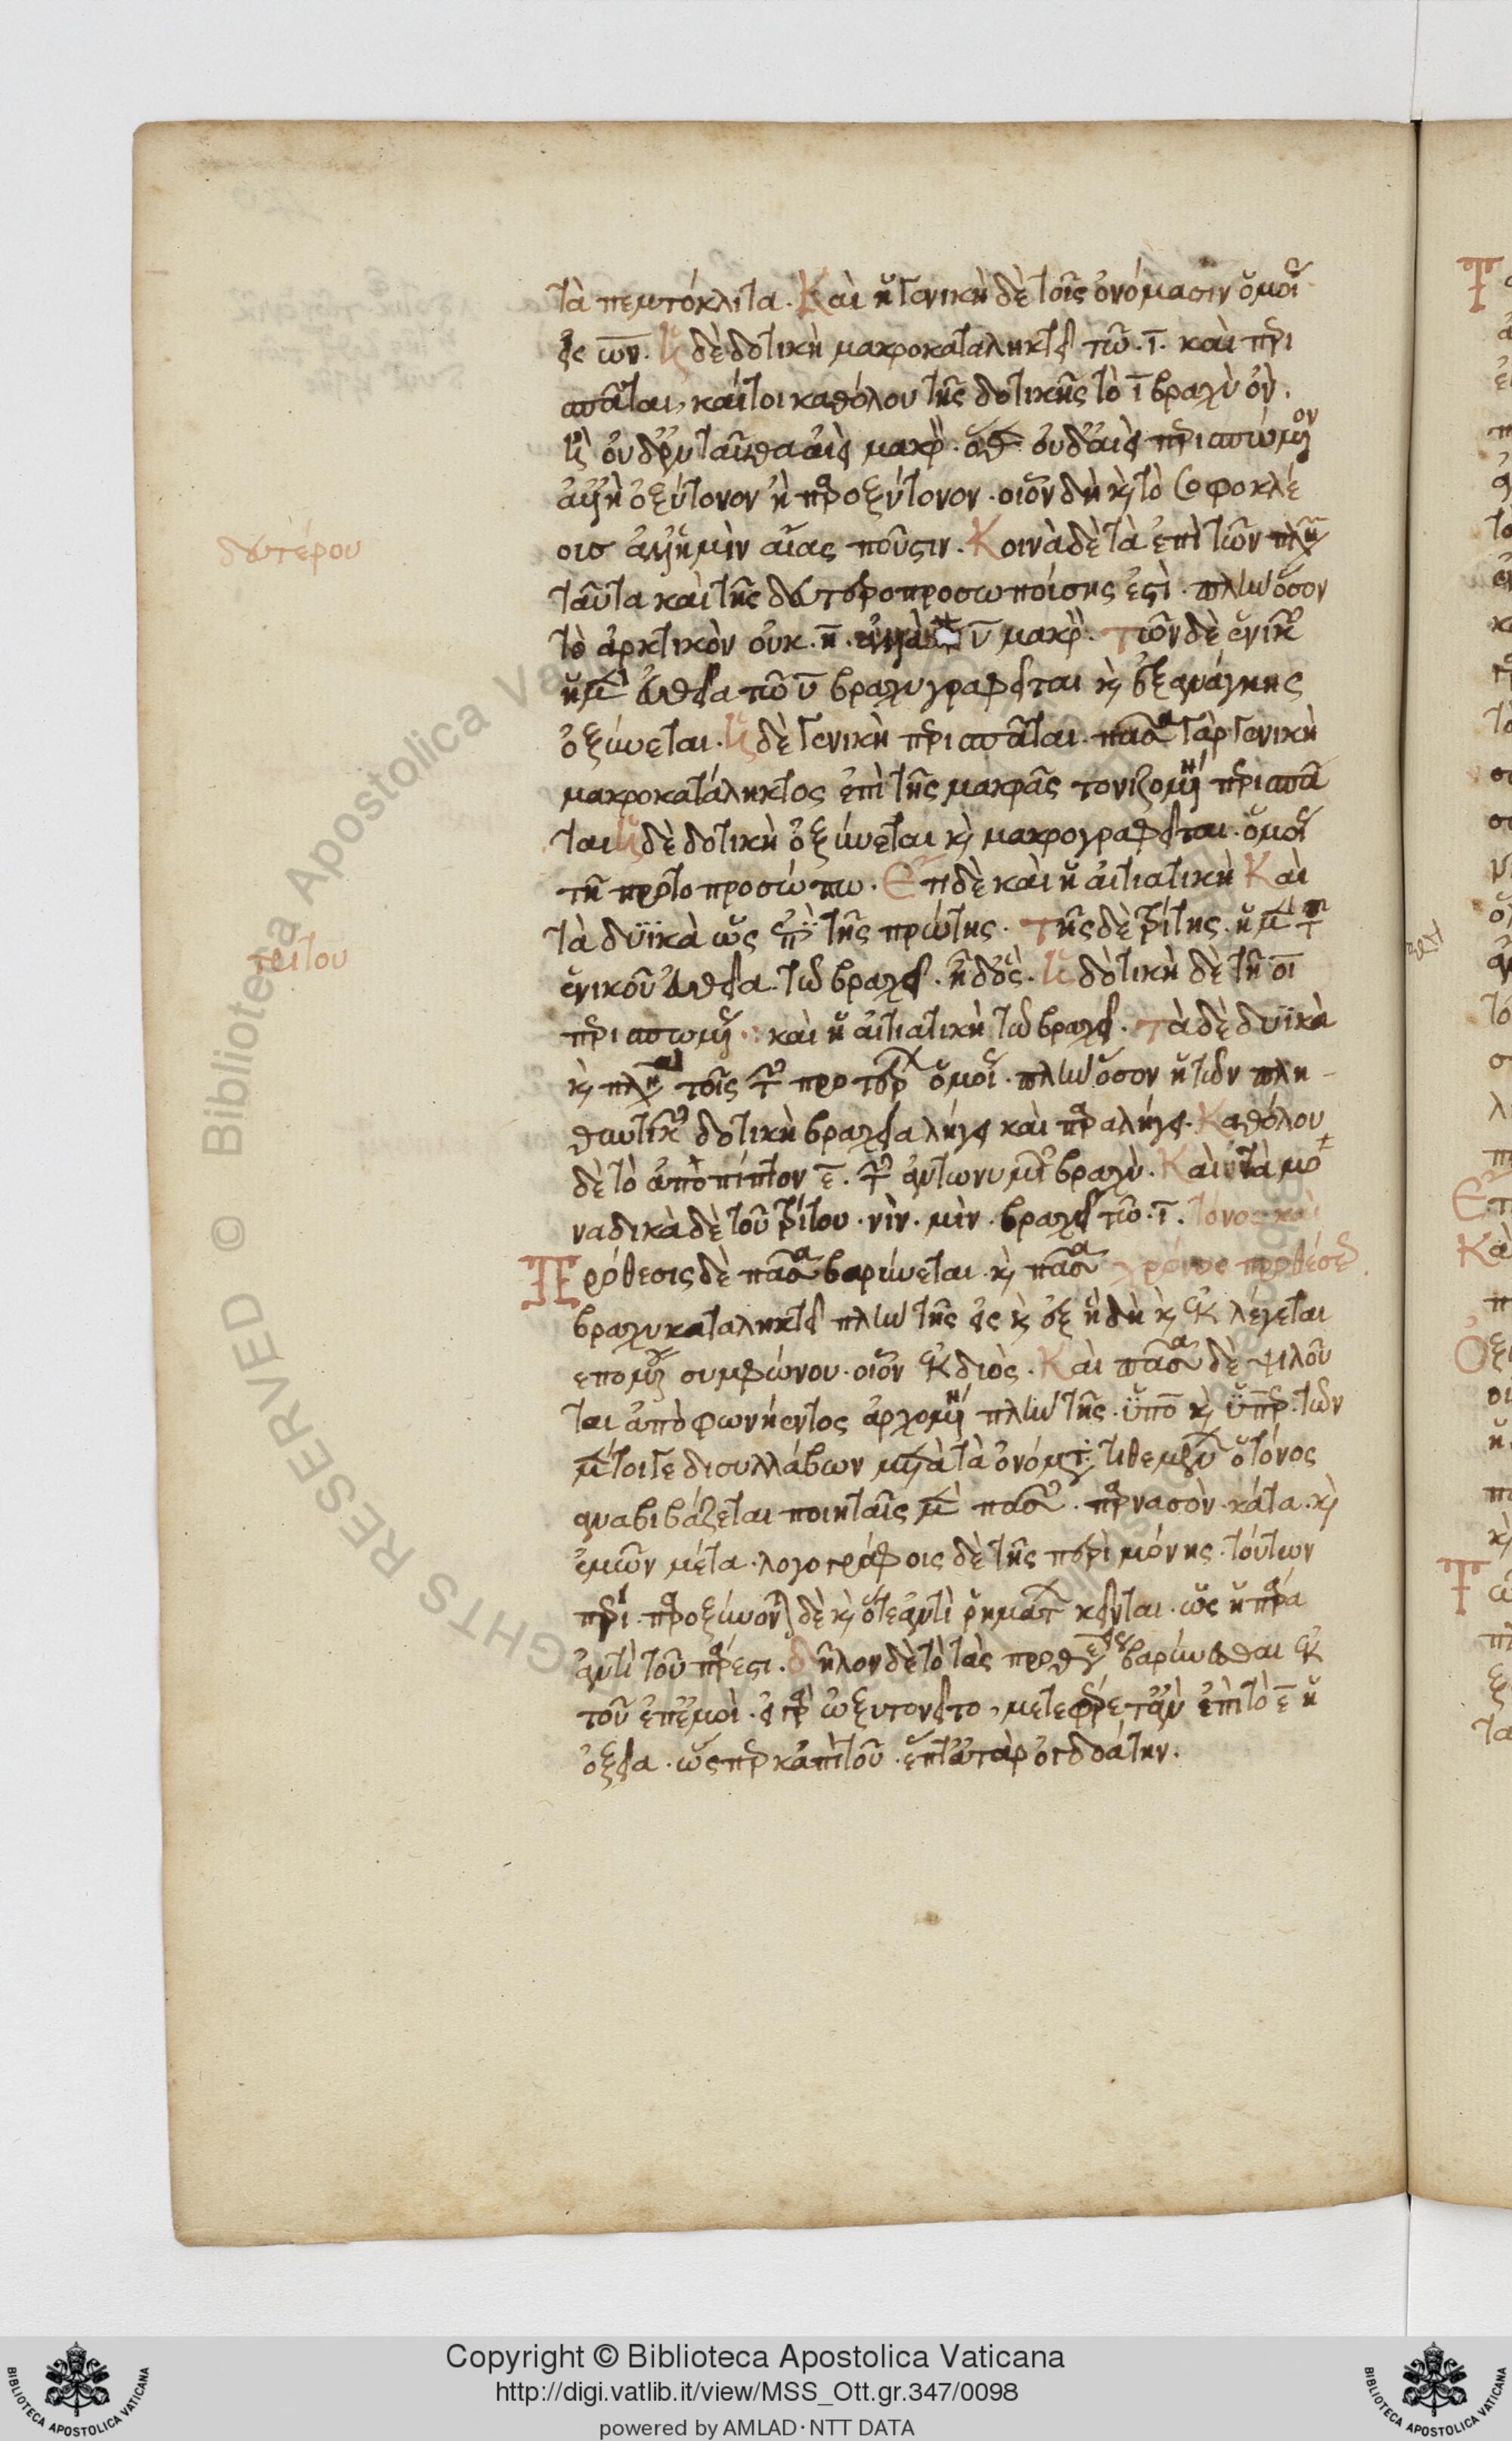 τὰ πεμπτόκλιτα. Καὶ ἡ γενικὴ δὲ τοῖς ὀνόμασιν ὁμοί
εἰς ων. ἡ δὲ δοτικὴ μακροκαταληκτεῖ τῶ ι. καὶ περι
σπᾶται, καίτοι καθόλου τῆς δοτικῆς τὸ ι βραχὺ ὄν.
οὐδ ἐνταῦθα ἀεὶ μακρ. οὐδ ἀεὶ περισπώμενον
ἀλλὰ ἢ ὀξύτονον ἢ παροξύτονον. οἷον δὴ καὶ τὸ Σοφοκλέ
οις ἀλλ ἡμὶν αἴας ποῦστιν. Κοινὰ δὲ τὰ ἐπὶ τῶν πλη
ταῦτα καὶ τῆς δευτεροπροσωποίσης ἐστὶ. πλὴν ὅσον
τὸ ἀρκτικὸν οὐκ. η. ἀλλὰ υ μακρ. Τῶν δὲ ἑνικ
εὐθεῖα τῶ υ βραχυγραφεῖται καὶ ἐξ ἀνάγκης
ὀξύνεται. ἡ δὲ γενικὴ περισπᾶται. πᾶσα γὰρ γενικὴ
μακροκατάληκτος ἐπὶ τῆς μακρᾶς τονιζομένη περισπᾶ
ται ἡ δὲ δοτικὴ ὀξύνεται καὶ μακρογραφεῖται. ὁμοί
τῆ πρωτοπροσώπω. Ἔτι δὲ καὶ ἡ αἰτιατικὴ Καὶ
τὰ δυϊκὰ ὡς ἐπὶ τῆς πρώτης. Τῆς δὲ τρίτης. ἡ μὲν τ
ἑνικοῦ εὐθεῖα τῶ βραχεῖ. ἡ δοτικὴ δὲ τῆ οι
περισπωμένη. καὶ ἡ αἰτιατικὴ τῶ βραχεῖ. Τὰ δὲ δυϊκὰ
καὶ πλη τοῖς τῶν προτέρων ὁμοί. πλὴν ὅσον ἡ τῶν πλη
θυντικ δοτικὴ βραχεῖα λήγει καὶ παραλήγει. Καθόλου
δὲ τὸ ἀποπίπτον ε. τῶν ἀντωνυμιῶν βραχὺ. Καὶ τὰ μο
ναδικὰ δὲ τοῦ τρίτου. νὶν. μὶν. βραχεῖ τῶ ι. τόνος καὶ
Πρόθεσις δὲ πᾶσα βαρύνεται. καὶ πᾶσα χρόνος προθέσε
βραχυκαταληκτεῖ πλὴν τῆς εἰς καὶ ἐξ ἤδη καὶ ἐκ λέγεται
ἑπομένου συμφώνου. οἷον ἐκ διὸς. Καὶ πᾶσα δὲ ψιλοῦ
ται ἀπὸ φωνήεντος ἀρχομένη πλὴν τῆς. ὑπὸ καὶ ὑπὲρ. τῶν
μέντοιγε δισυλλάβων μετὰ τὰ ὀνόματα τιθεμένων ὁ τόνος
ἀναβιβάζεται ποιηταῖς μὲν πασῶν. παρνασὸν κάτα. καὶ
ἐμῶν μέτα. λογογράφοις δὲ τῆς περὶ μόνης. τούτων
πέρι. παροξύνονται δὲ καὶ ὅτε ἀντὶ ῥημάτων κεῖνται. ὡς ἡ πάρα
ἀντὶ τοῦ πάρεστι. δῆλον δὲ τὸ τὰς προθέσεις βαρύνεσθαι ἐκ
τοῦ ἐπ ἐμοὶ. εἰ γὰρ ὠξυτονεῖτο, μετεφέρετ ἂν ἐπὶ τὸ ε ἡ
ὀξεῖα. ὡς περ κἀπὶ τοῦ. ἕπτ αὐτὰρ ὀγδοάτην.
δευτέρου
τρίτου
Copyright © Biblioteca Apostolica Vaticana
http://digi.vatlib.it/view/MSS_Ott.gr.347/0098
powered by AMLAD·NTT DATA